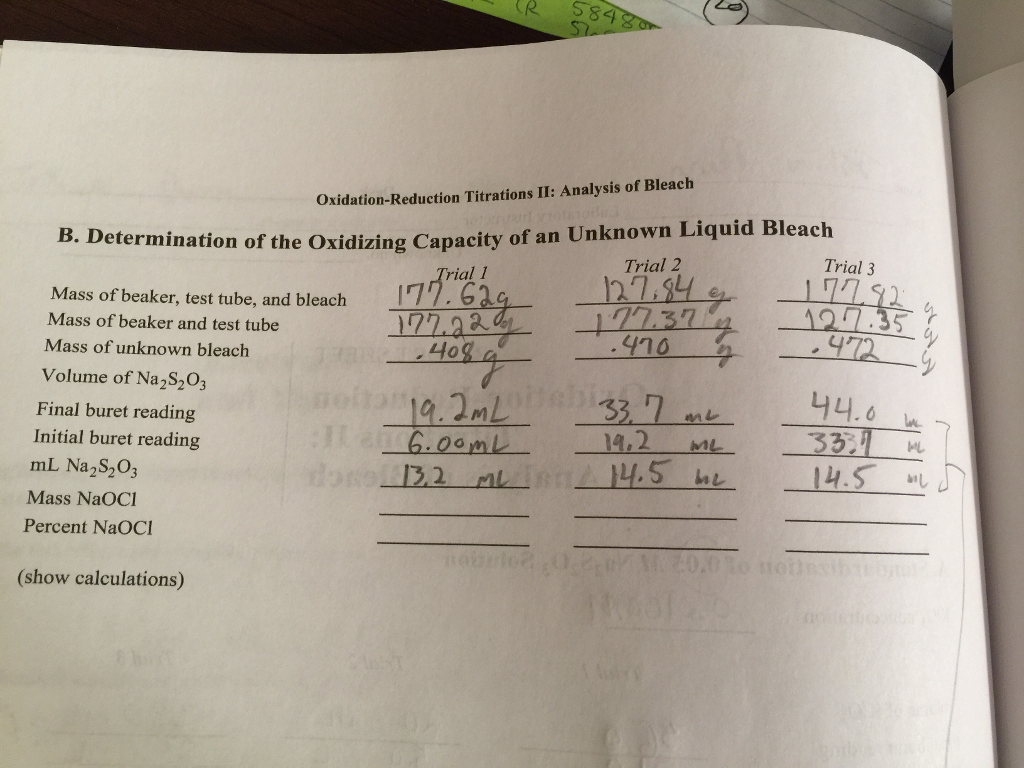 (R 5848
20
Oxidation-Reduction Titrations II: Analysis of Bleach
B. Determination of the Oxidizing Capacity of an Unknown Liquid Bleach
Trial 1 Trial 2 Trial 3
Mass of beaker, test tube, and bleach 177.62g 127.84 g 177.82 g
Mass of beaker and test tube 177.22g 177.37 g 127.35 g
Mass of unknown bleach .408 g .470 g .472 g
Volume of Na₂S₂O₃
Final buret reading 19.2mL 33.7 mL 44.0 mL
Initial buret reading 6.00mL 19.2 mL 33.7 mL
mL Na₂S₂O₃ 13.2 mL 14.5 mL 14.5 mL
Mass NaOCl
Percent NaOCl
(show calculations)